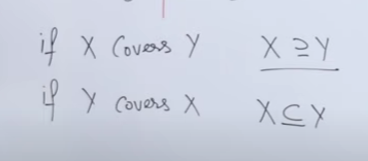 if X Covers Y X ⊇ Y
if Y Covers X X ⊆ Y